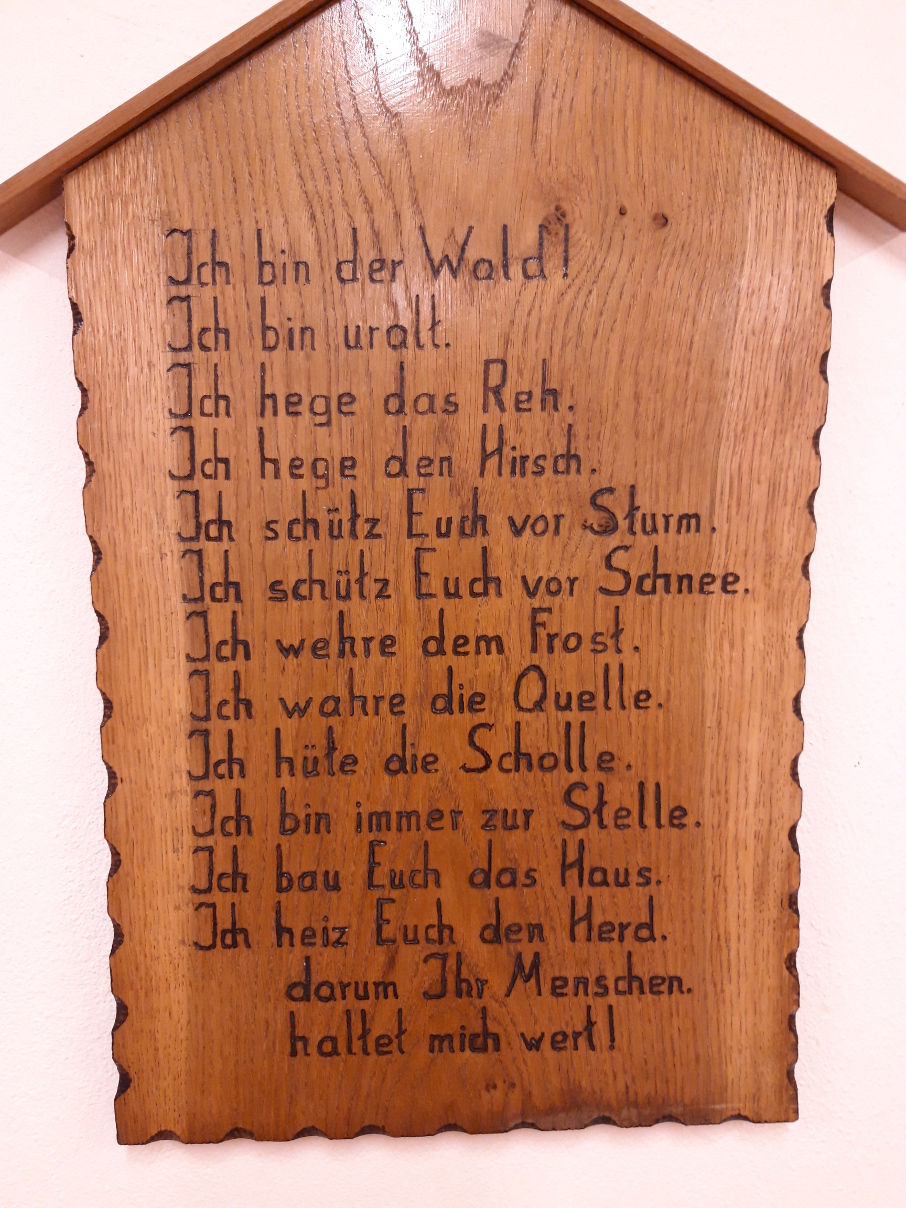 Ich bin der Wald!
Ich bin uralt.
Ich hege das Reh.
Ich hege den Hirsch.
Ich schütz Euch vor Sturm.
Ich schütz Euch vor Schnee.
Ich wehre dem Frost.
Ich wahre die Quelle.
Ich hüte die Scholle.
Ich bin immer zur Stelle.
Ich bau Euch das Haus.
Ich heiz Euch den Herd.
darum Ihr Menschen.
haltet mich wert!